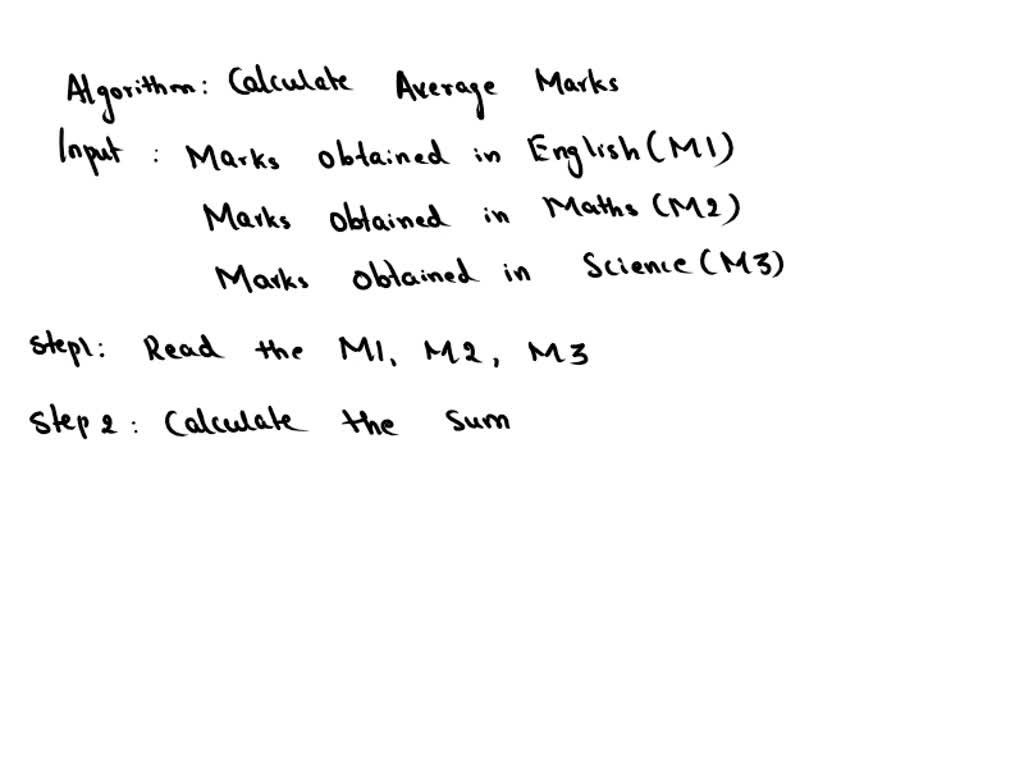 Algorithm: Calculate Average Marks
Input : Marks obtained in English (M1)
Marks obtained in Maths (M2)
Marks obtained in Science (M3)
Step1: Read the M1, M2, M3
Step 2: Calculate the sum